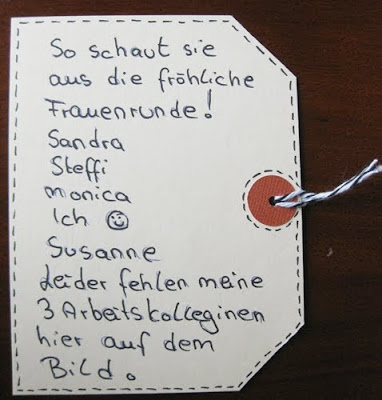 So schaut sie
aus die fröhliche
Frauenrunde!
Sandra
Steffi
Monica
Ich ☺
Susanne
Leider fehlen meine
3 Arbeitskolleginen
hier auf dem
Bild.